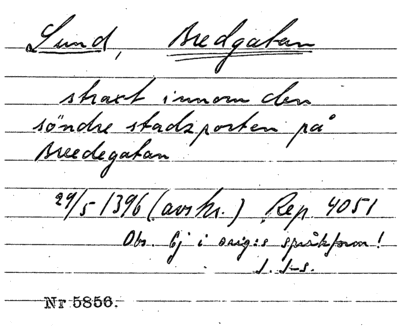 Lund, Bredgatan
straxt innom den
söndre stadzporten på
Breedegatan
29/5 1396 (avskr.) Rep. 4051
Obs. Ej i orig:s språkform!
Nr 5856.